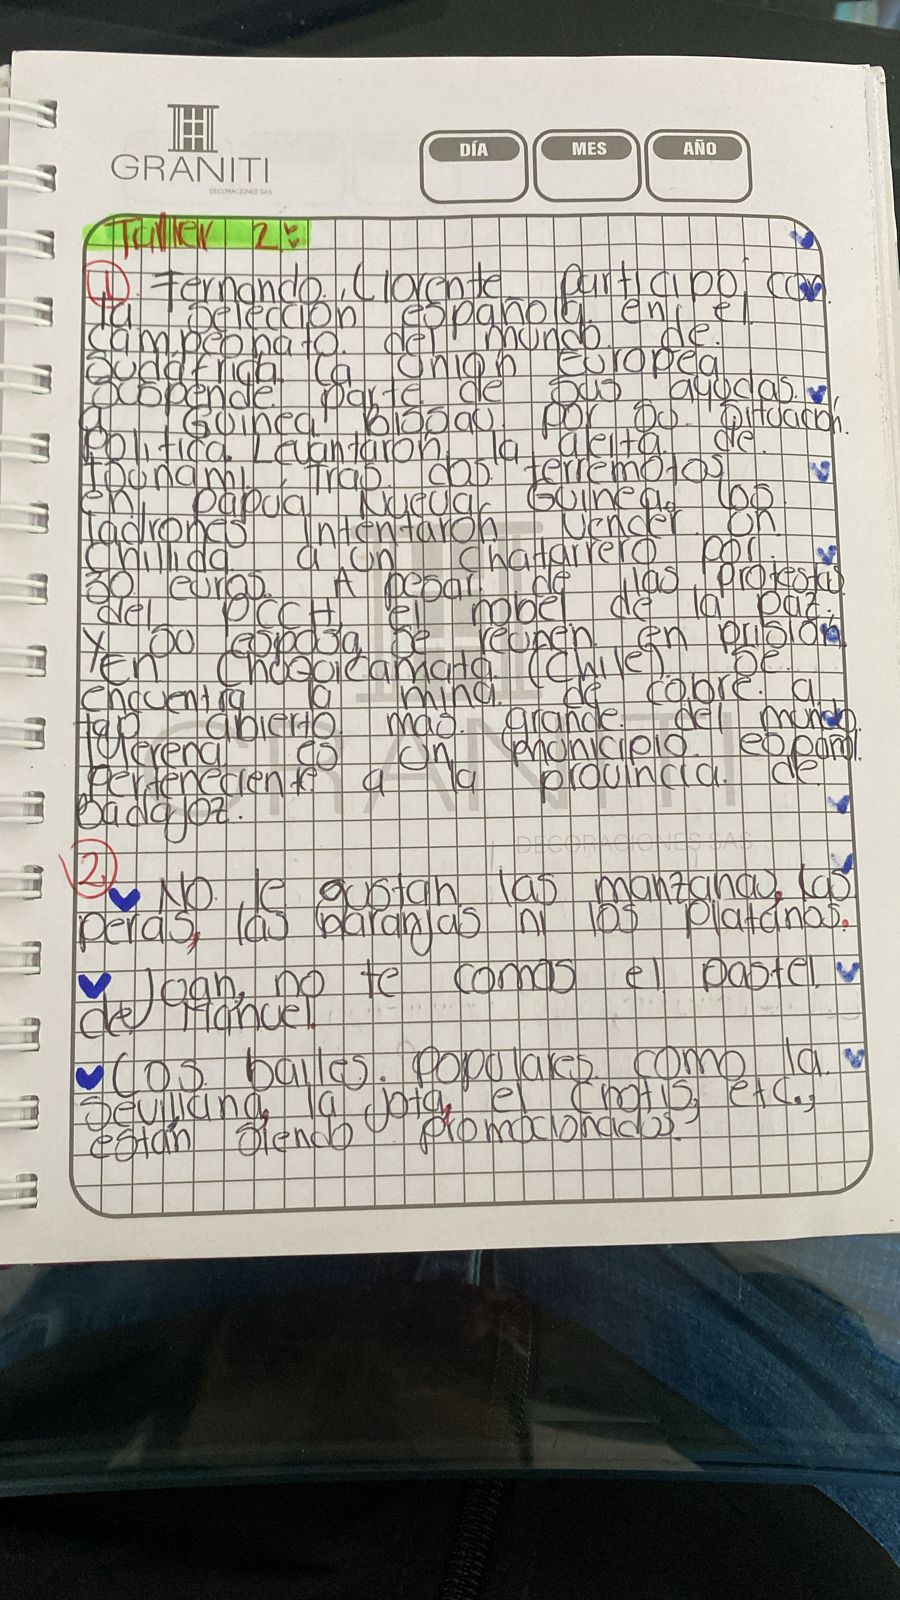 GRANITI
DECORACIONES SAS
DÍA MES AÑO
Taller 2:
1. Fernando Llorente participó con
la selección española en el
campeonato del mundo de
Sudáfrica. La Unión europea
suspende parte de sus ayudas
a Guinea Bissau por su situación
Política. Levantaron la alerta de
tsunami tras dos terremotos
en Papúa Nueva Guinea. los
ladrones intentaron vender un
Chillida a un chatarrero por
30 euros. A pesar de las protestas
del PCCH, el nobel de la paz
y su esposa se reúnen en prisión
en Chuquicamata (Chile) se
encuentra la mina de cobre a
tajo abierto mas grande del mundo
Llerena es un municipio español
Perteneciente a la provincia de
Badajoz.
DECORACIONES SAS
2.
No le gustan las manzanas, las
peras, las naranjas ni los platanos.
Joan, no te comas el pastel
de Manuel.
Los bailes populares como la
sevillana, la jota, el chotis, etc.,
están siendo promocionados.